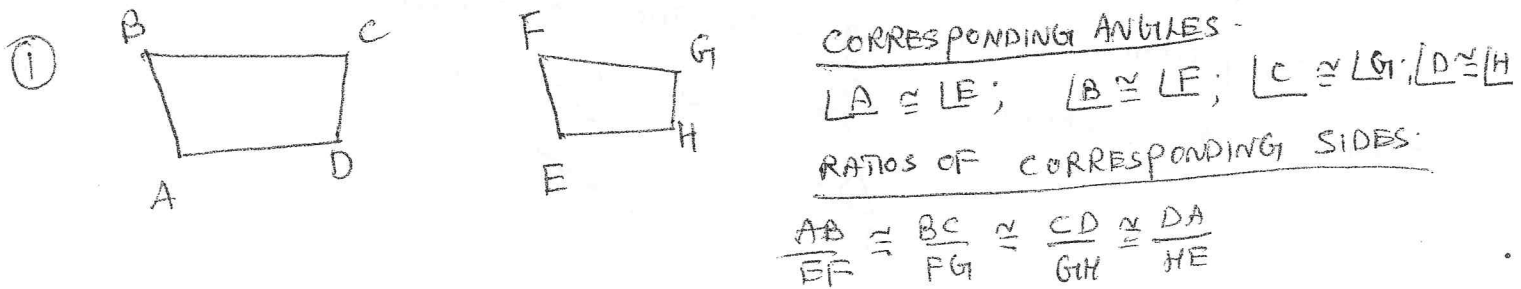 ①
B C
A D
F G
E H
CORRESPONDING ANGLES -
∠A ≅ ∠E; ∠B ≅ ∠F; ∠C ≅ ∠G; ∠D ≅ ∠H
RATIOS OF CORRESPONDING SIDES.
AB/EF ≅ BC/FG ≅ CD/GH ≅ DA/HE